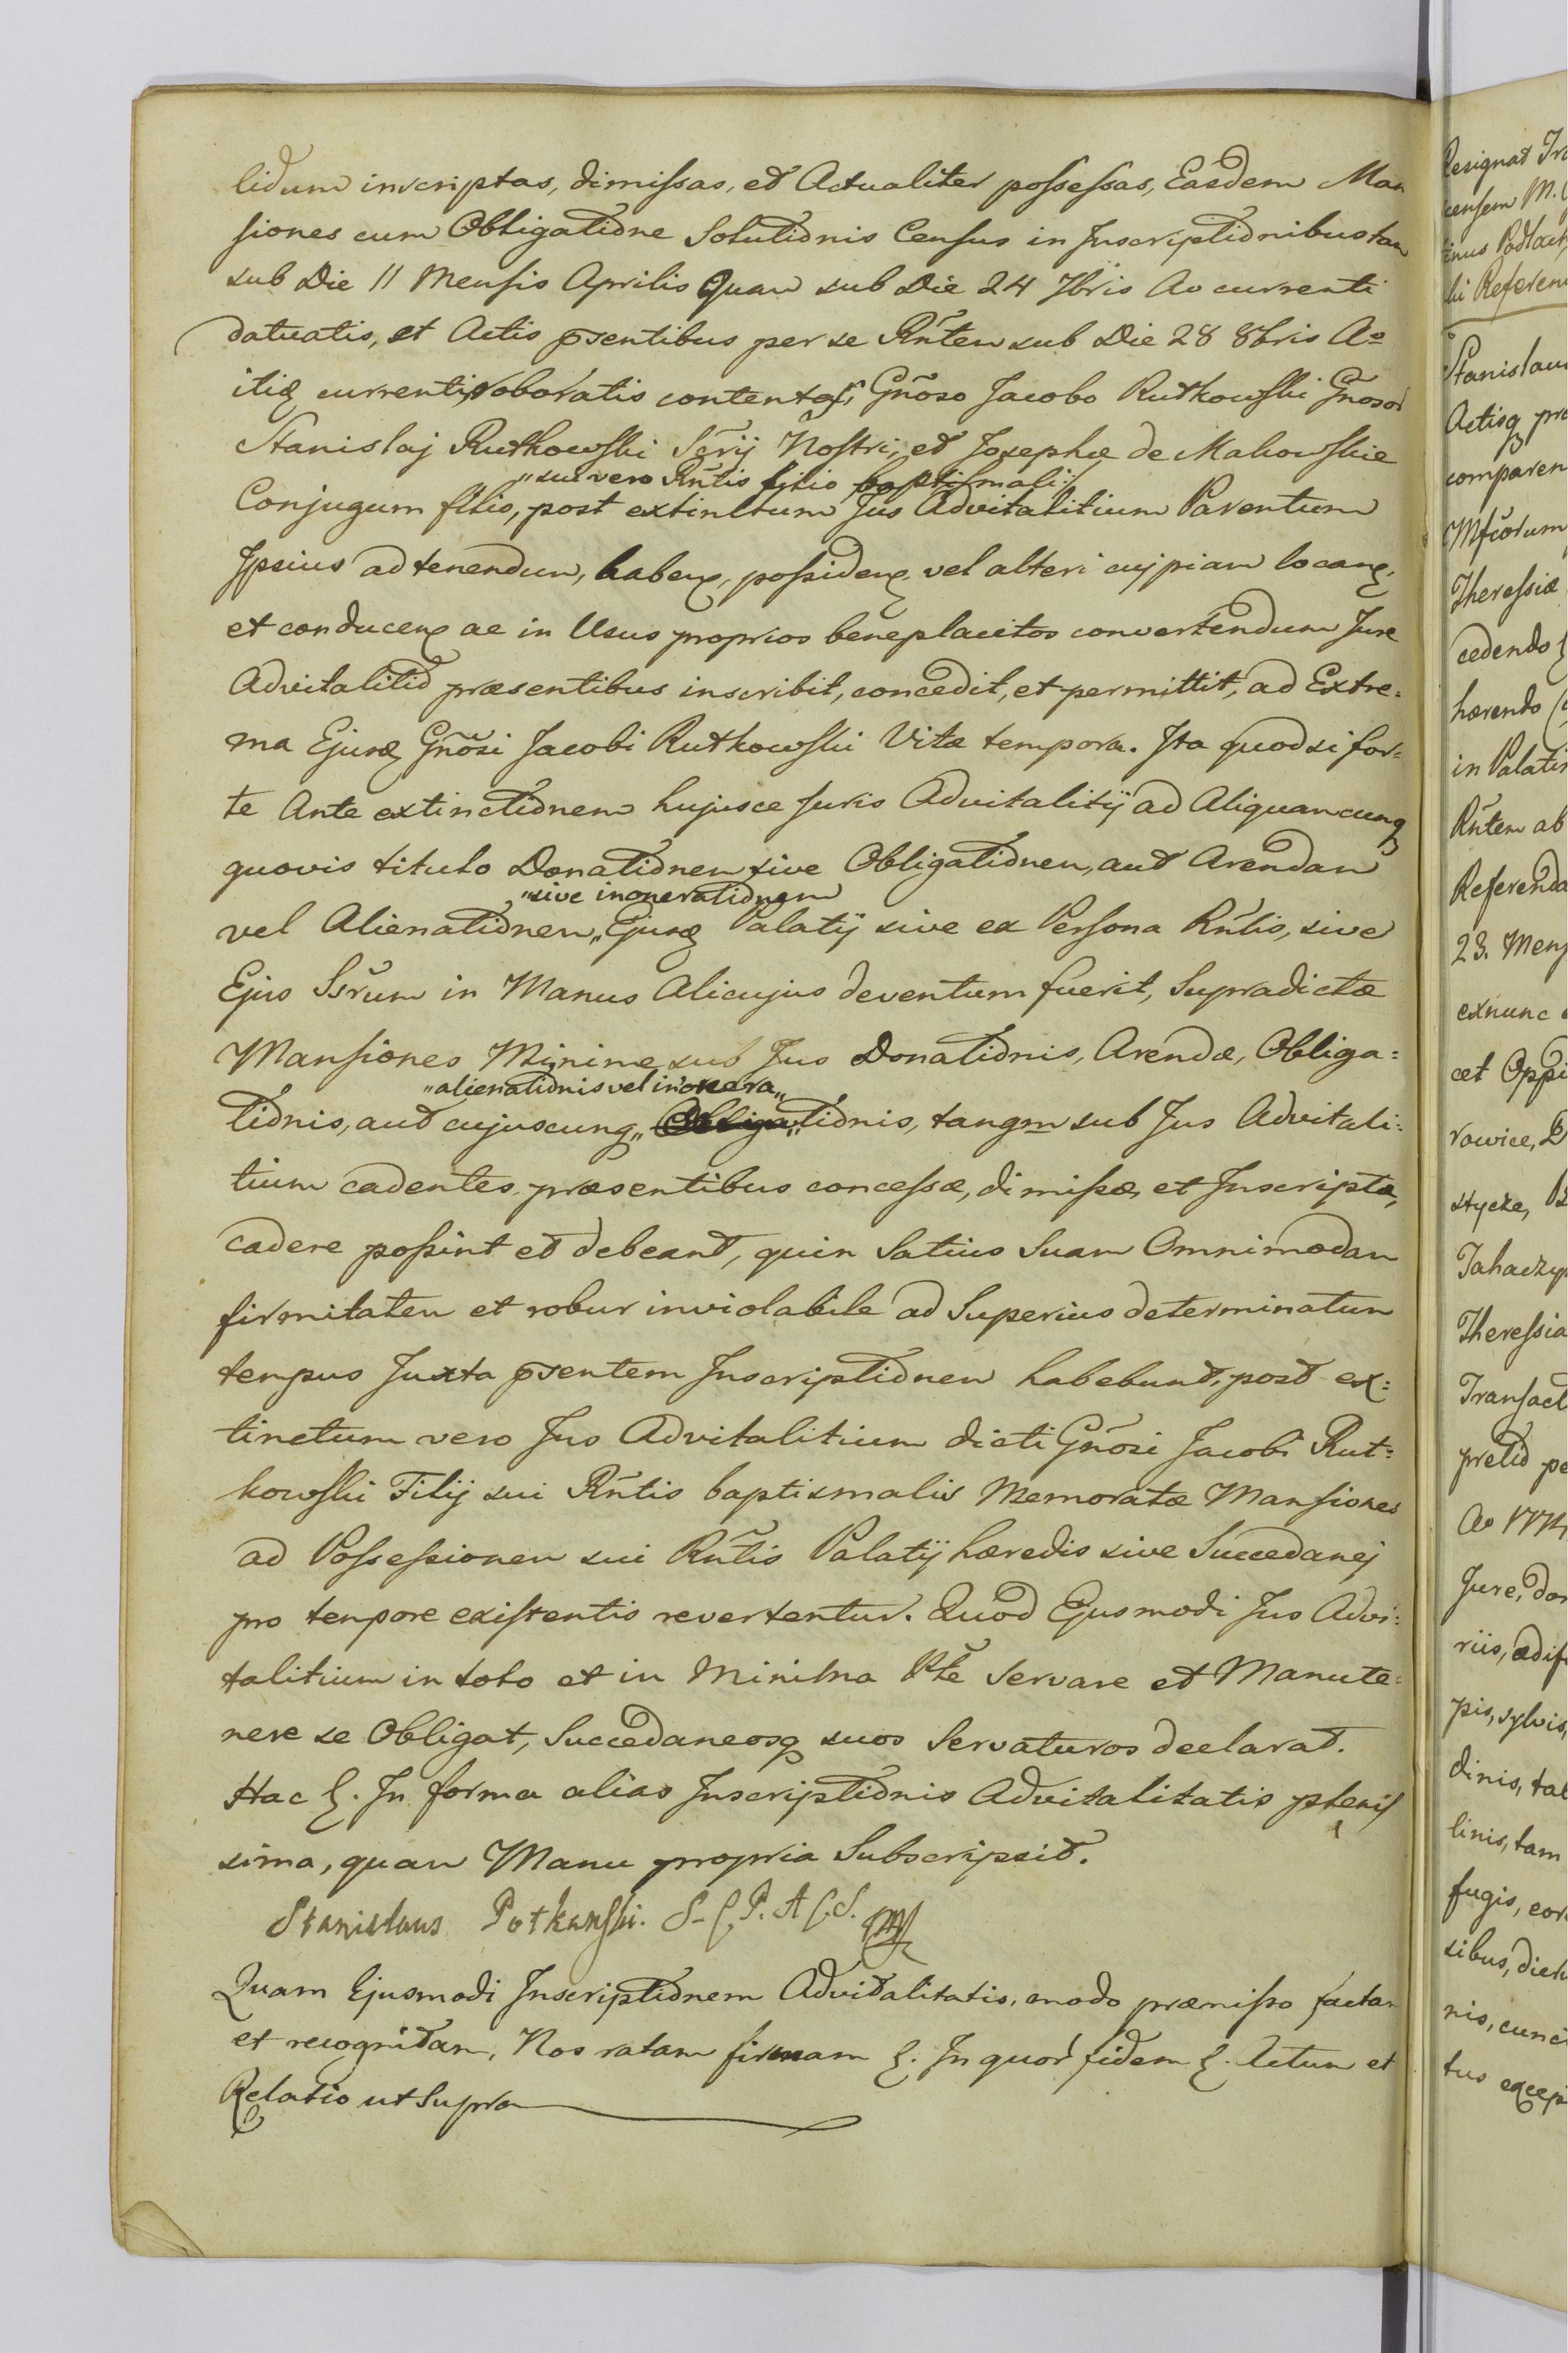 lidum inscriptas, dimissas, et Actualiter possessas, Easdem Man
siones cum Obligatione Solutionis Census in Inscriptionibus tam
sub Die 11 Mensis Aprilis Quam sub Die 24 7bris Ao currenti
datuatis, et Actis psentibus per se Rñtem sub Die 28 8bris Ao
itiq currenti roboratis contentas, Gñoso Jacobo Rutkowski Gnosor
Stanislaj Rutkowski Serij Nostri, et Josephæ de Makowskie
"sui vero Rñtis filio baptismali
Conjugum filio, post extinctum Jus Advitalitium Parentum
Ipsius ad tenendum, habenę, possidenę, vel alteri cujpiam locanę,
et conducenę ac in Usus proprios beneplacitos convertendum Jure
Advitalitio præsentibus inscribit, concedit, et permittit, ad Extre:
ma Ejusq Gñosi Jacobi Rutkowski Vitæ tempora. Ita quod si for:
te Ante extinctionem hujusce Juris Advitalitij ad Aliquamcunq
quovis titulo Donationem sive Obligationem, aut Arendam
"sive inonerationem
vel Alienationem, Ejusq Palatij sive ex Persona Rñtis, sive
Ejus Ssrum in Manus Alicujus deventum fuerit, Supradictæ
Mansiones Minime sub Jus Donationis, Arendæ, Obliga:
"alienationis vel inonera"
tionis, aut cujuscunq" Obliga"tionis, tanqm sub Jus Advitali:
tium cadentes præsentibus concessæ, dimissæ, et Inscriptæ,
cadere possint et debeant, quin Satius Suam Omnimodam
firmitatem et robur inviolabile ad Superius determinatum
tempus Juxta psentem Inscriptionem habebunt, post ex:
tinctum vero Jus Advitalitium dicti Gñosi Jacobi Rut:
kowski Filij sui Rñtis baptismalis Memoratæ Mansiones
ad Possessionem sui Rñtis Palatij hæredis sive Succedanej
pro tempore existentis revertentur. Quod Ejusmodi Jus Advi:
talitium in toto et in Minima Pte Servare et Manute:
nere se Obligat, Succedaneosq suos Servaturos declarat.
Hac &. In forma alias Inscriptionis Advitalitatis plenis
sima, quam Manu propria Subscripsit.
Stanislaus Potkanski. S. C. P. A C. S. mp
Quam Ejusmodi Inscriptionem Advitalitatis, modo præmisso factam
et recognitam, Nos ratam firmam &. In quor fidem &. Actum et
Relatio ut Supra
Resignat
censem M.
tinus Podlach
ki Referen
Stanislau
Actisq pre
comparen
Mficorum
Theressiæ
cedendo
hærendo
in Palatin
Rñtem ab
Referenda
23. Mens
exnunc
cet Oppi
rowice,
stycze,
Theressia
Transact
pretio pe
Ao 1774
Jure, don
riis, ædifi
pis, sylvis,
dinis, tal
linis, tam
fugis, eor
sibus, dict
nis, cunct
tus excep